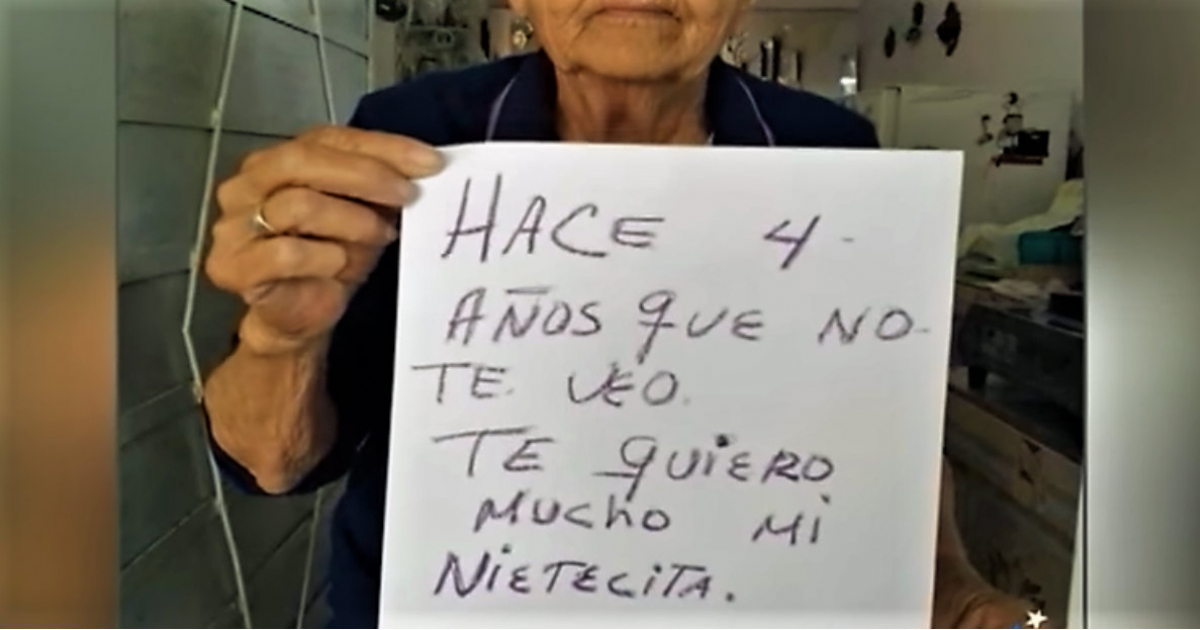 HACE 4
AÑOS QUE NO
TE VEO.
TE QUIERO
MUCHO MI
NIETECITA.